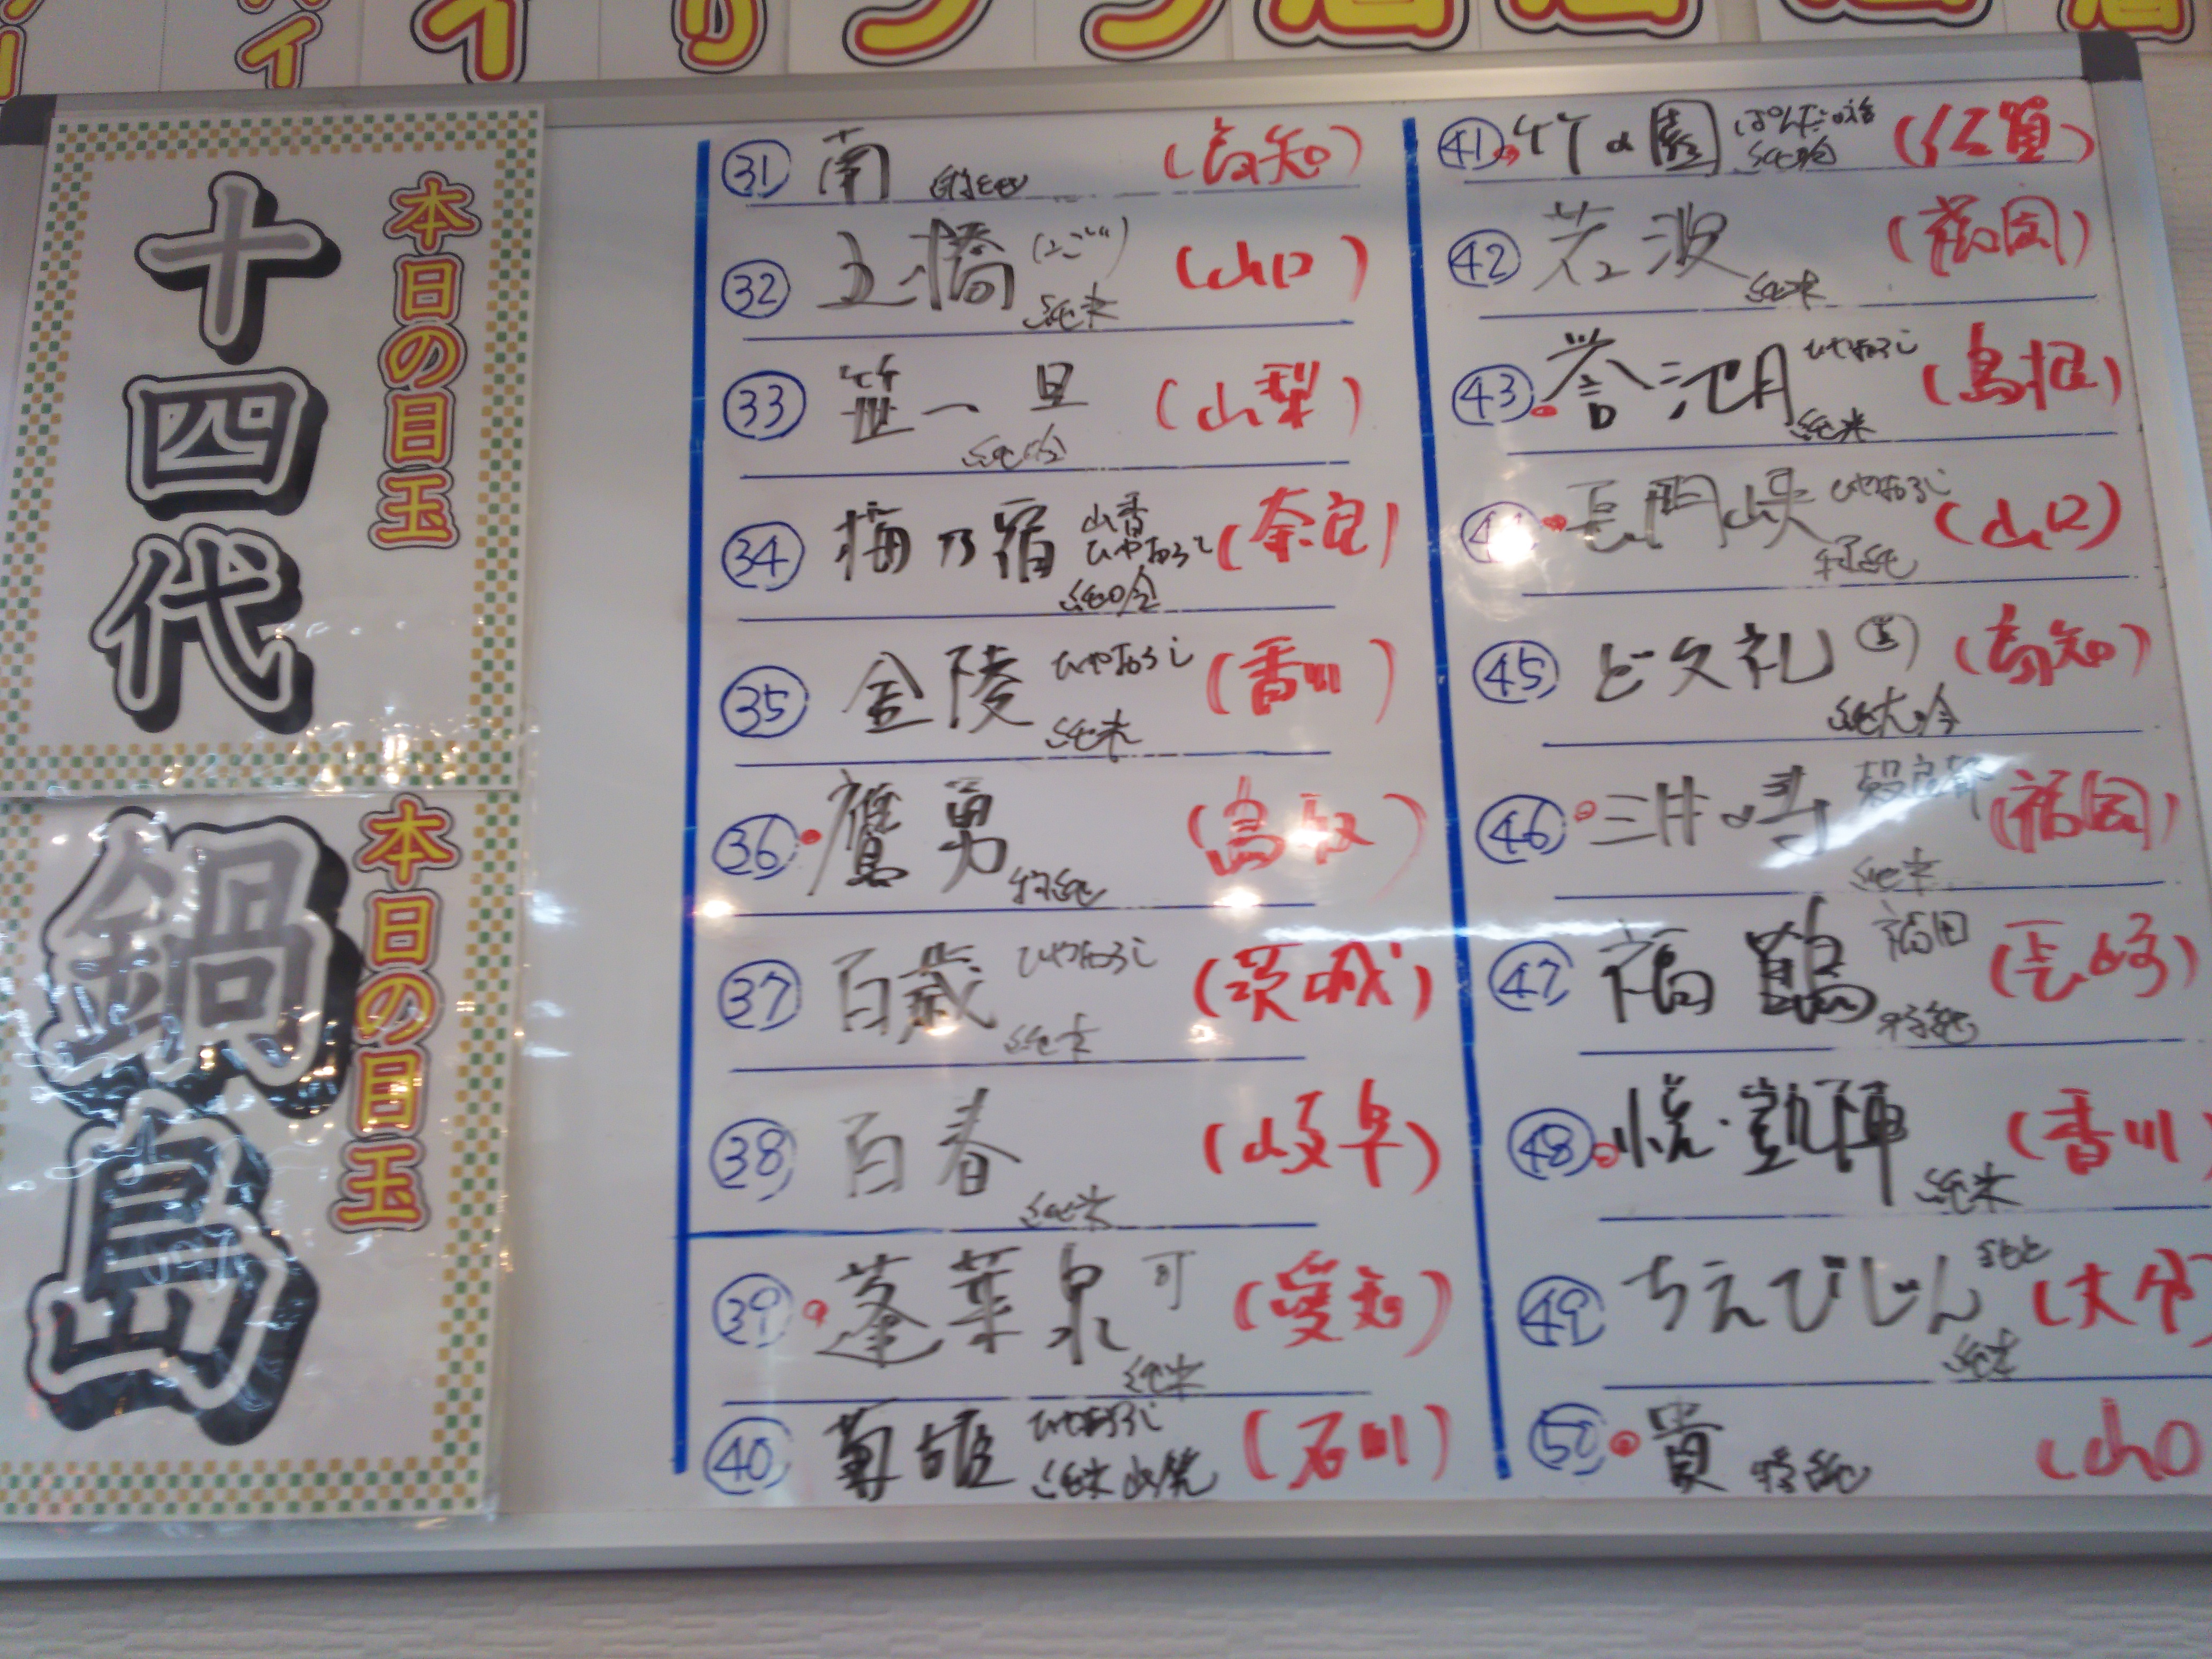 本日の目玉
十四代
本日の目玉
鍋島
㉛ 南 (高知)
㉜ 五橋 純米 (山口)
㉝ 笹一 旦 純吟 (山梨)
㉞ 梅乃宿 山香 ひやおろし 純吟 (奈良)
㉟ 金陵 ひやおろし 純米 (香川)
㊱ 鷹勇 特純 (鳥取)
㊲ 百歳 ひやおろし 純米 (茨城)
㊳ 百春 純米 (岐阜)
㊴ 蓬莱泉 可 純米 (愛知)
㊵ 菊姫 ひやおろし 純米 山廃 (石川)
㊶ 竹の園 純吟 (佐賀)
㊷ 若波 純米 (福岡)
㊸ 誉池月 ひやおろし 純米 (島根)
㊹ 長門峡 ひやおろし 特純 (山口)
㊺ ど文礼 純大吟 (高知)
㊻ 三井の寿 穀良都 純米 (福岡)
㊼ 福鶴 福田 特純 (長崎)
㊽ 悦・凱陣 純米 (香川)
㊾ ちえびじん 純米 (大分
㊿ 貴 特純 (山口